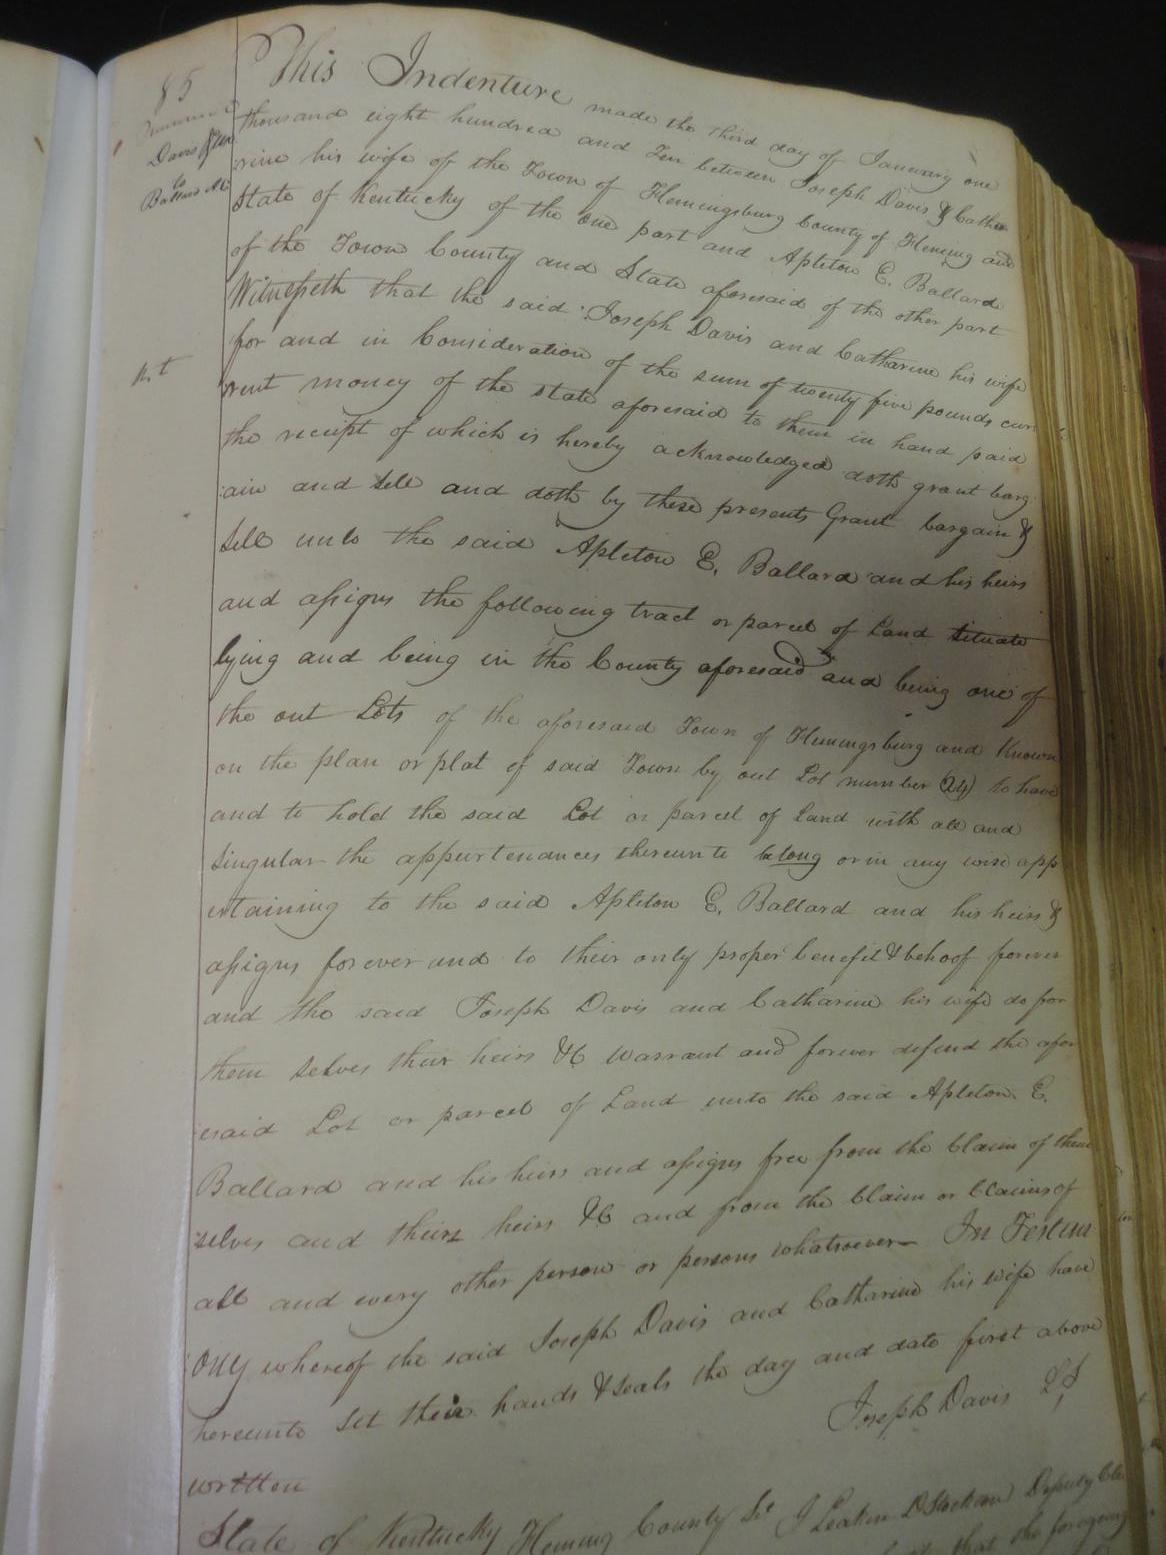 85
Davis & Ux
to
Ballard A E
This Indenture made the third day of January one
thousand eight hundred and Ten between Joseph Davis & Catha
rine his wife of the Town of Flemingsburg County of Fleming and
State of Kentucky of the one part and Apleton E. Ballard
of the Town County and State aforesaid of the other part
Witnesseth that the said Joseph Davis and Catharine his wife
for and in Consideration of the sum of twenty five pounds cur
rent money of the state aforesaid to them in hand paid
the receipt of which is hereby acknowledged doth grant barg
ain and sell and doth by these presents Grant bargain &
sell unto the said Apleton E. Ballard and his heirs
and assigns the following tract or parcel of Land situate
lying and being in the County aforesaid and being one of
the out Lots of the aforesaid Town of Flemingsburg and Known
on the plan or plat of said Town by out Lot number (24) to have
and to hold the said Lot or parcel of land with all and
singular the appurtenances thereunto belong or in any wise app
ertaining to the said Apleton E. Ballard and his heirs &
assigns forever and to their only proper benefit & behoof forever
and the said Joseph Davis and Catharine his wife do for
them selves their heirs &C warrant and forever defend the afor
esaid Lot or parcel of Land unto the said Apleton E.
Ballard and his heirs and assigns free from the Claim of them
selves and theirs heirs &C and from the Claim or Claims of
all and every other person or persons whatsoever— In Testim
ony whereof the said Joseph Davis and Catharine his wife have
hereunto set their hands & seals the day and date first above
written
Joseph Davis LS
State of Kentucky Fleming County Sct I Deputy Cle
that the foregoing